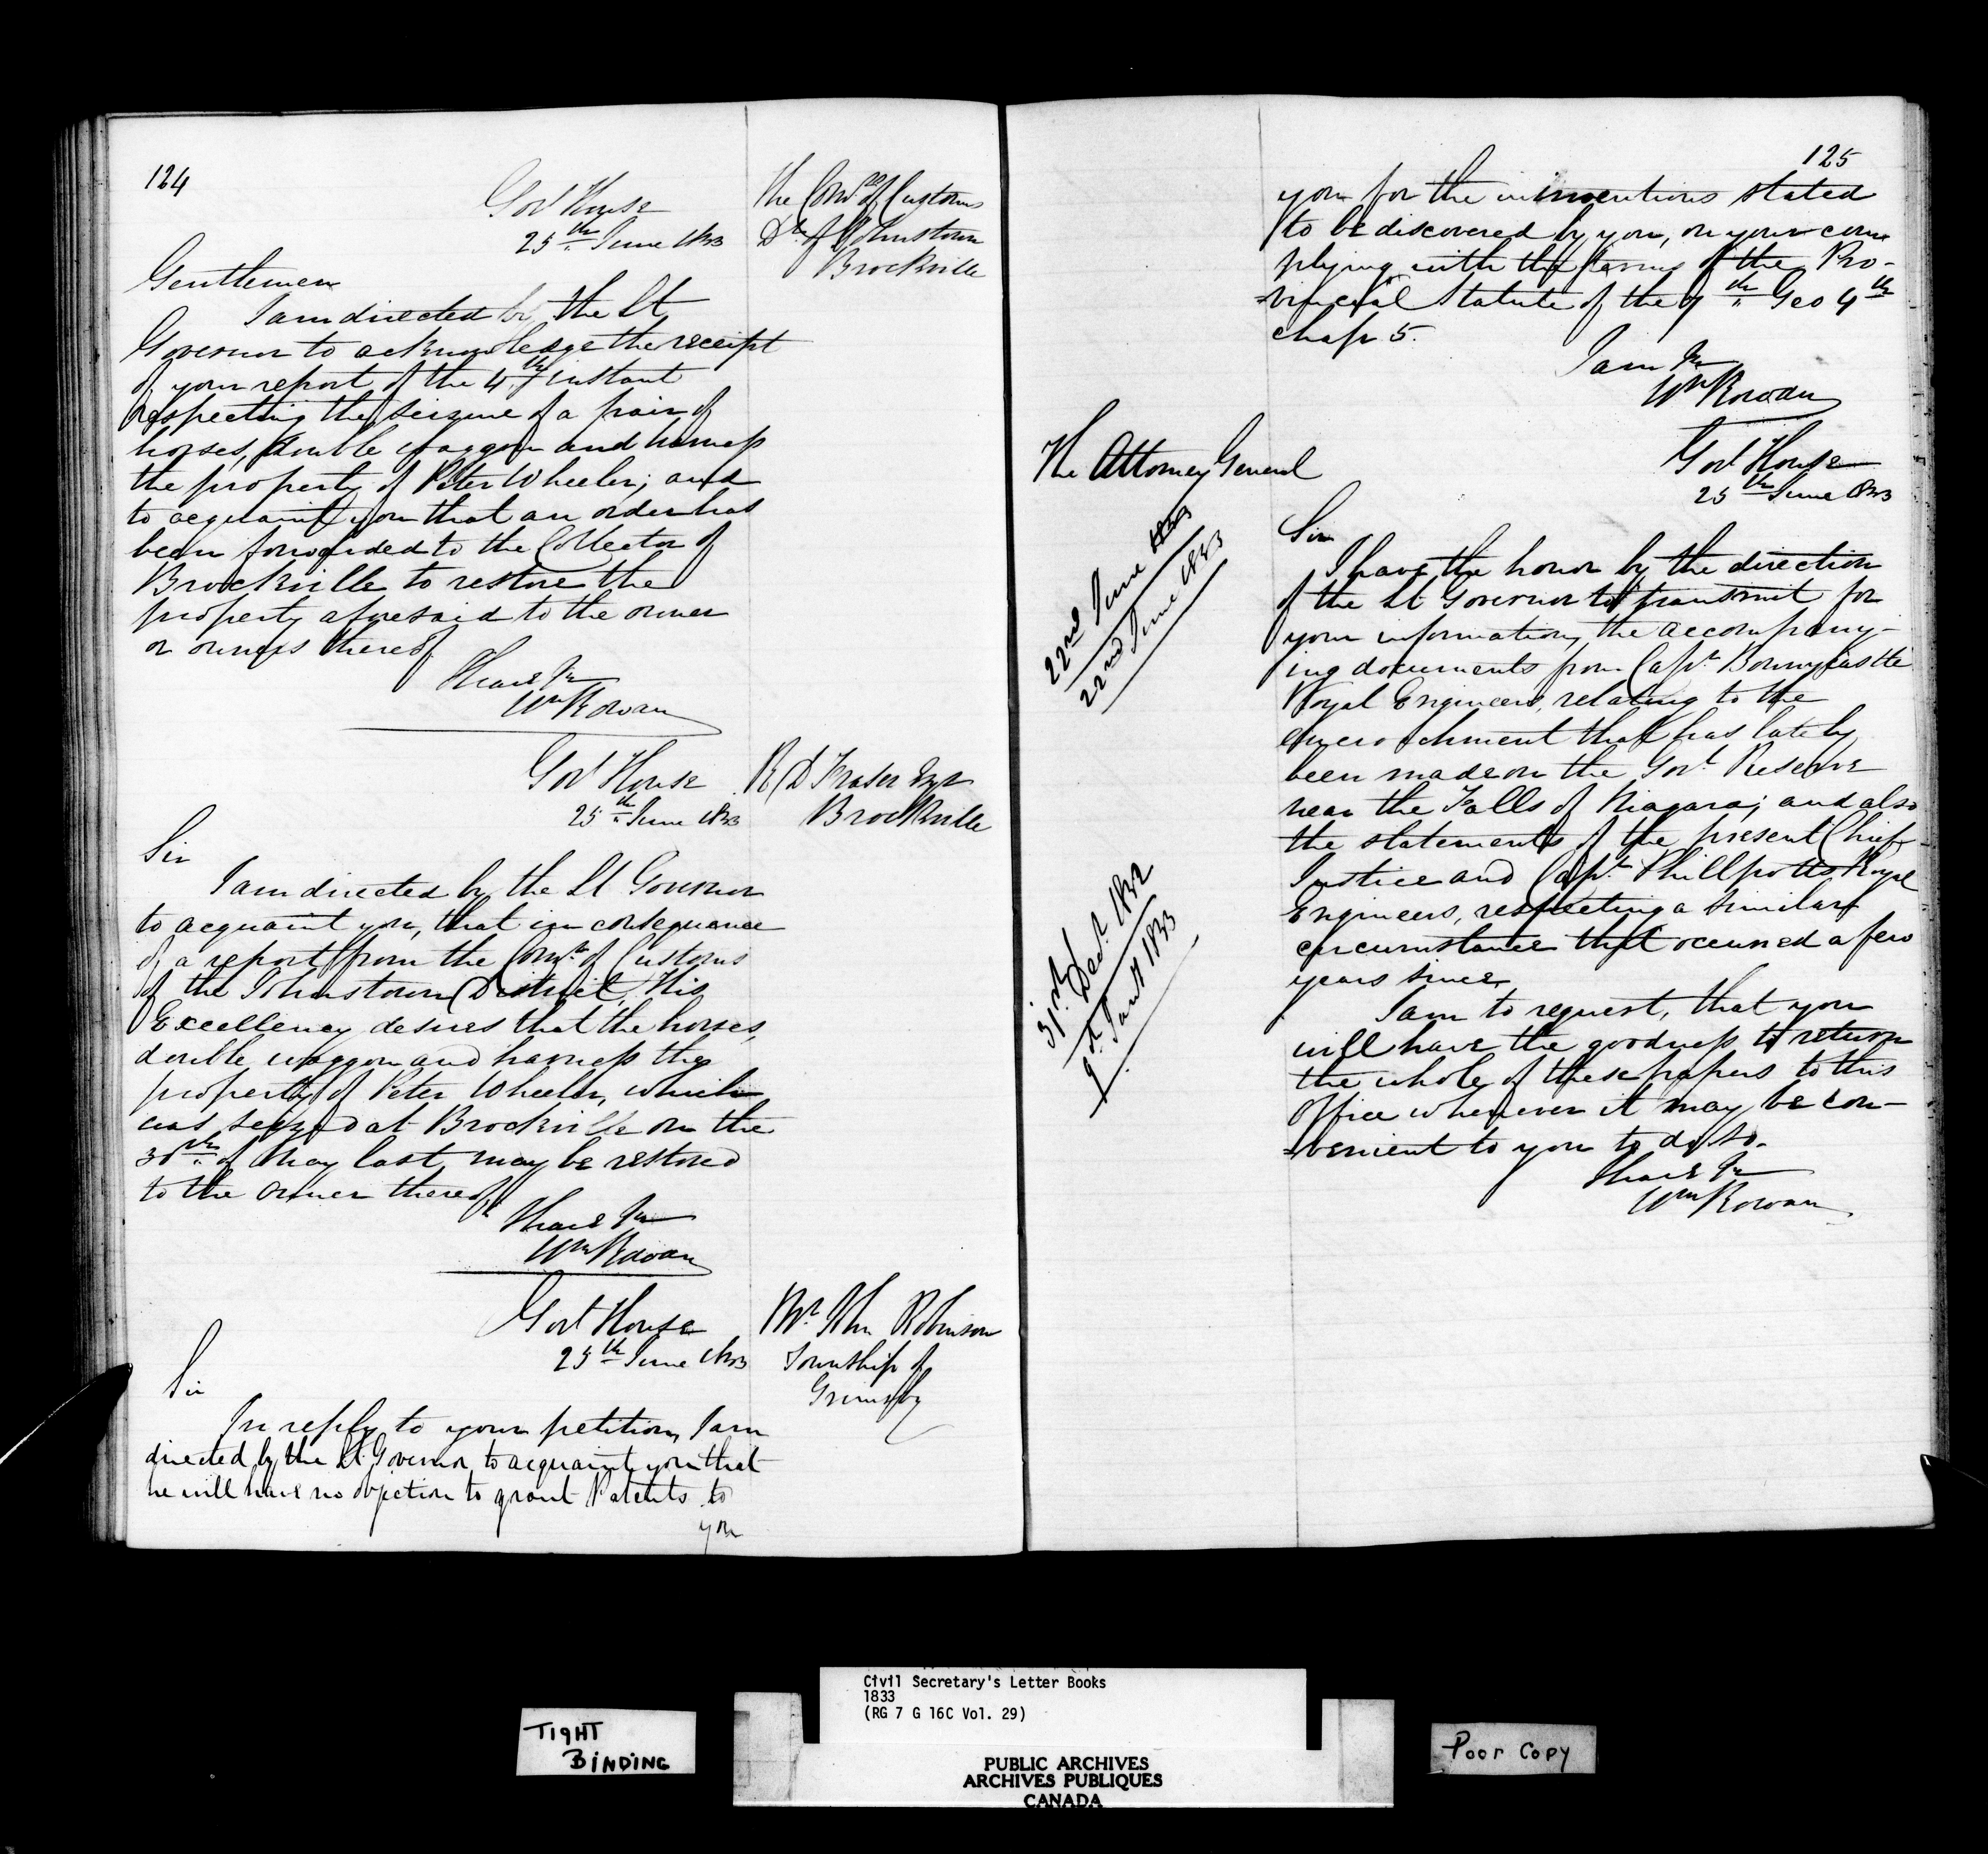 124
Govt House
25th June 1833
The Comrs of Customs
Dt of Johnstown
Brockville
Gentlemen
I am directed by the Lt
Governor to acknowledge the receipt
of your report of the 4th instant
respecting the seizure of a pair of
horses, double waggon and harness
the property of Peter Wheeler; and
to acquaint you that an order has
been forwarded to the Collector of
Brockville to restore the
property aforesaid to the owner
or owners thereof
I have &c
Wm Rowan
Govt House
25th June 1833
R D Fraser Esqr
Brockville
Sir
I am directed by the Lt Governor
to acquaint you, that in consequence
of a report from the Comrs of Customs
of the Johnstown District, His
Excellency desires that the horses,
double waggon and harness the
property of Peter Wheeler, which
was seized at Brockville on the
30th of May last, may be restored
to the owner thereof
I have &c
Wm Rowan
Govt House
25th June 1833
Mr John Robinson
Township of
Grimsby
Sir
In reply to your petition, I am
directed by the Lt Governor to acquaint you that
he will have no objection to grant Patents to
you
125
you for the inventions stated
to be discovered by you, on your com
plying with the terms of the Pro-
-vincial Statute of the 7th Geo 4th
chap 5.
I am &c
Wm Rowan
The Attorney General
Govt House
25th June 1833
22nd June 1833
22nd June 1833
31st Decr 1832
9th Jany 1833
Sir
I have the honor by the direction
of the Lt Governor to transmit for
your information, the accompany-
ing documents from Capt Bonnycastle
Royal Engineers, relating to the
encroachment that has lately
been made on the Govt Reserve
near the Falls of Niagara; and also
the statements of the present Chief
Justice and Capt Phillpotts Royal
Engineers, respecting a similar
circumstance that occurred a few
years since
I am to request, that you
will have the goodness to return
the whole of these papers to this
Office whenever it may be con-
-venient to you to do so.
I have &c
Wm Rowan
TIGHT
BINDING
Civil Secretary's Letter Books
1833
(RG 7 G 16C Vol. 29)
PUBLIC ARCHIVES
ARCHIVES PUBLIQUES
CANADA
Poor Copy